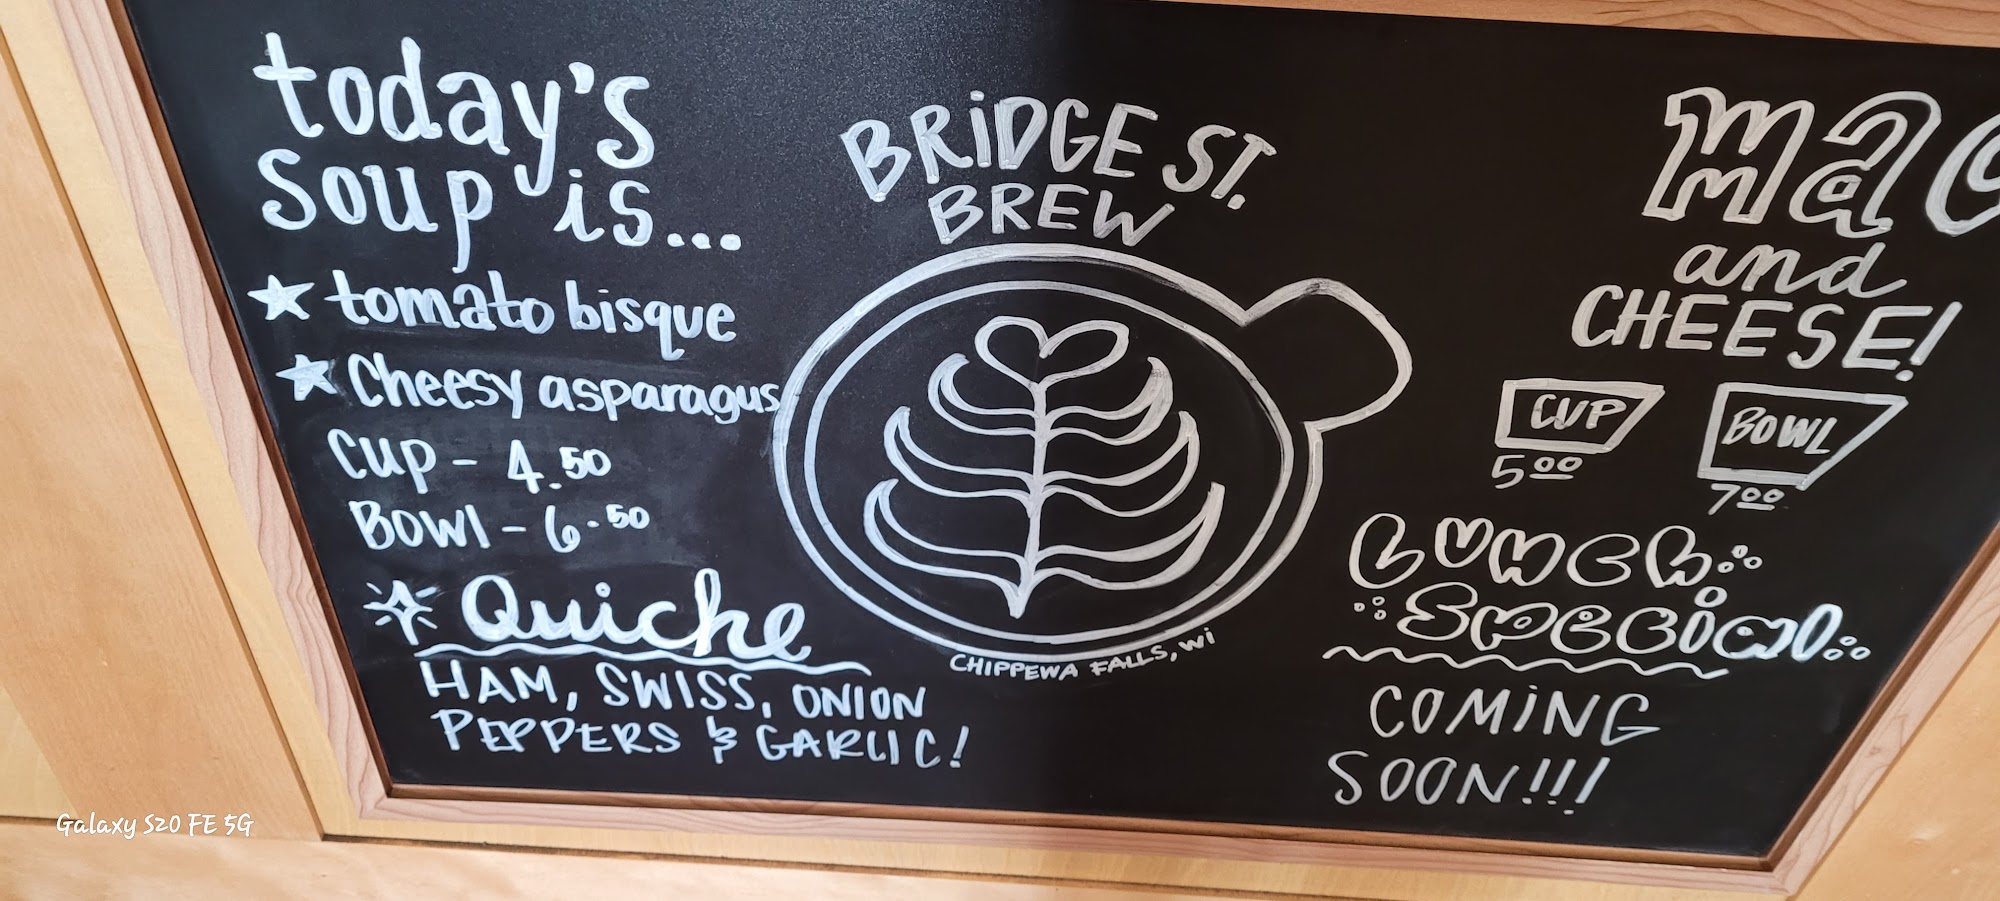 today's
soup is...
tomato bisque
Cheesy asparagus
CUP - 4.50
BOWl - 6.50
Quiche
HAM, SWISS, ONION
PEPPERS & GARLIC!
BRIDGE ST.
BREW
CHIPPEWA FALLS, Wi
mac
and
CHEESE!
CUP BOWL
5.00 7.00
LUNCH
SPECIAL
COMiNG
SOON!!!
Galaxy S20 FE 5G